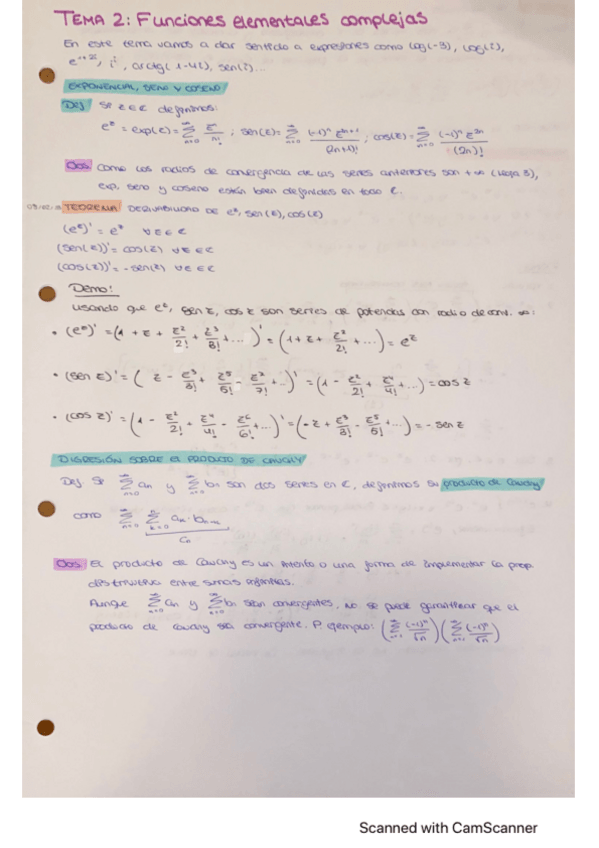 TEMA 2: Funciones elementales complejas
En este tema vamos a dar sentido a expresiones como log(-3), log(i),
e^{1+2i}, i^i, arctg(1-4i), sen(i)...
EXPONENCIAL, SENO Y COSENO
Def Si z ∈ ℂ definimos:
e^z = exp(z) = ∑_{n=0}^∞ z^n/n! ; sen(z) = ∑_{n=0}^∞ (-1)^n z^{2n+1}/(2n+1)! ; cos(z) = ∑_{n=0}^∞ (-1)^n z^{2n}/(2n)!
Obs: Como los radios de convergencia de las series anteriores son +∞ (Hoja 3),
exp, seno y coseno están bien definidos en todo ℂ.
TEOREMA DERIVABILIDAD DE e^z, sen(z), cos(z)
(e^z)' = e^z ∀z ∈ ℂ
(sen(z))' = cos(z) ∀z ∈ ℂ
(cos(z))' = -sen(z) ∀z ∈ ℂ
Demo:
usando que e^z, sen z, cos z son series de potencias con radio de conv. ∞:
• (e^z)' = (1 + z + z²/2! + z³/3! + ...)' = (1 + z + z²/2! + ...) = e^z
• (sen z)' = (z - z³/3! + z⁵/5! - z⁷/7! + ...)' = (1 - z²/2! + z⁴/4! + ...) = cos z
• (cos z)' = (1 - z²/2! + z⁴/4! - z⁶/6! + ...)' = (-z + z³/3! - z⁵/5! + ...) = - sen z
DIGRESIÓN SOBRE EL PRODUCTO DE CAUCHY
Def Si ∑_{n=0}^∞ an y ∑_{n=0}^∞ bn son dos series en ℂ, definimos su producto de Cauchy
como ∑_{n=0}^∞ ∑_{k=0}^n ak · bn-k
Cn
Obs: El producto de Cauchy es un intento o una forma de implementar la prop.
distributiva entre sumas infinitas.
Aunque ∑_{n=0}^∞ an y ∑_{n=0}^∞ bn sean convergentes, no se puede garantizar que el
producto de Cauchy sea convergente. P. ejemplo: (∑_{n=1}^∞ (-1)^n/√n)(∑_{n=1}^∞ (-1)^n/√n)
Scanned with CamScanner